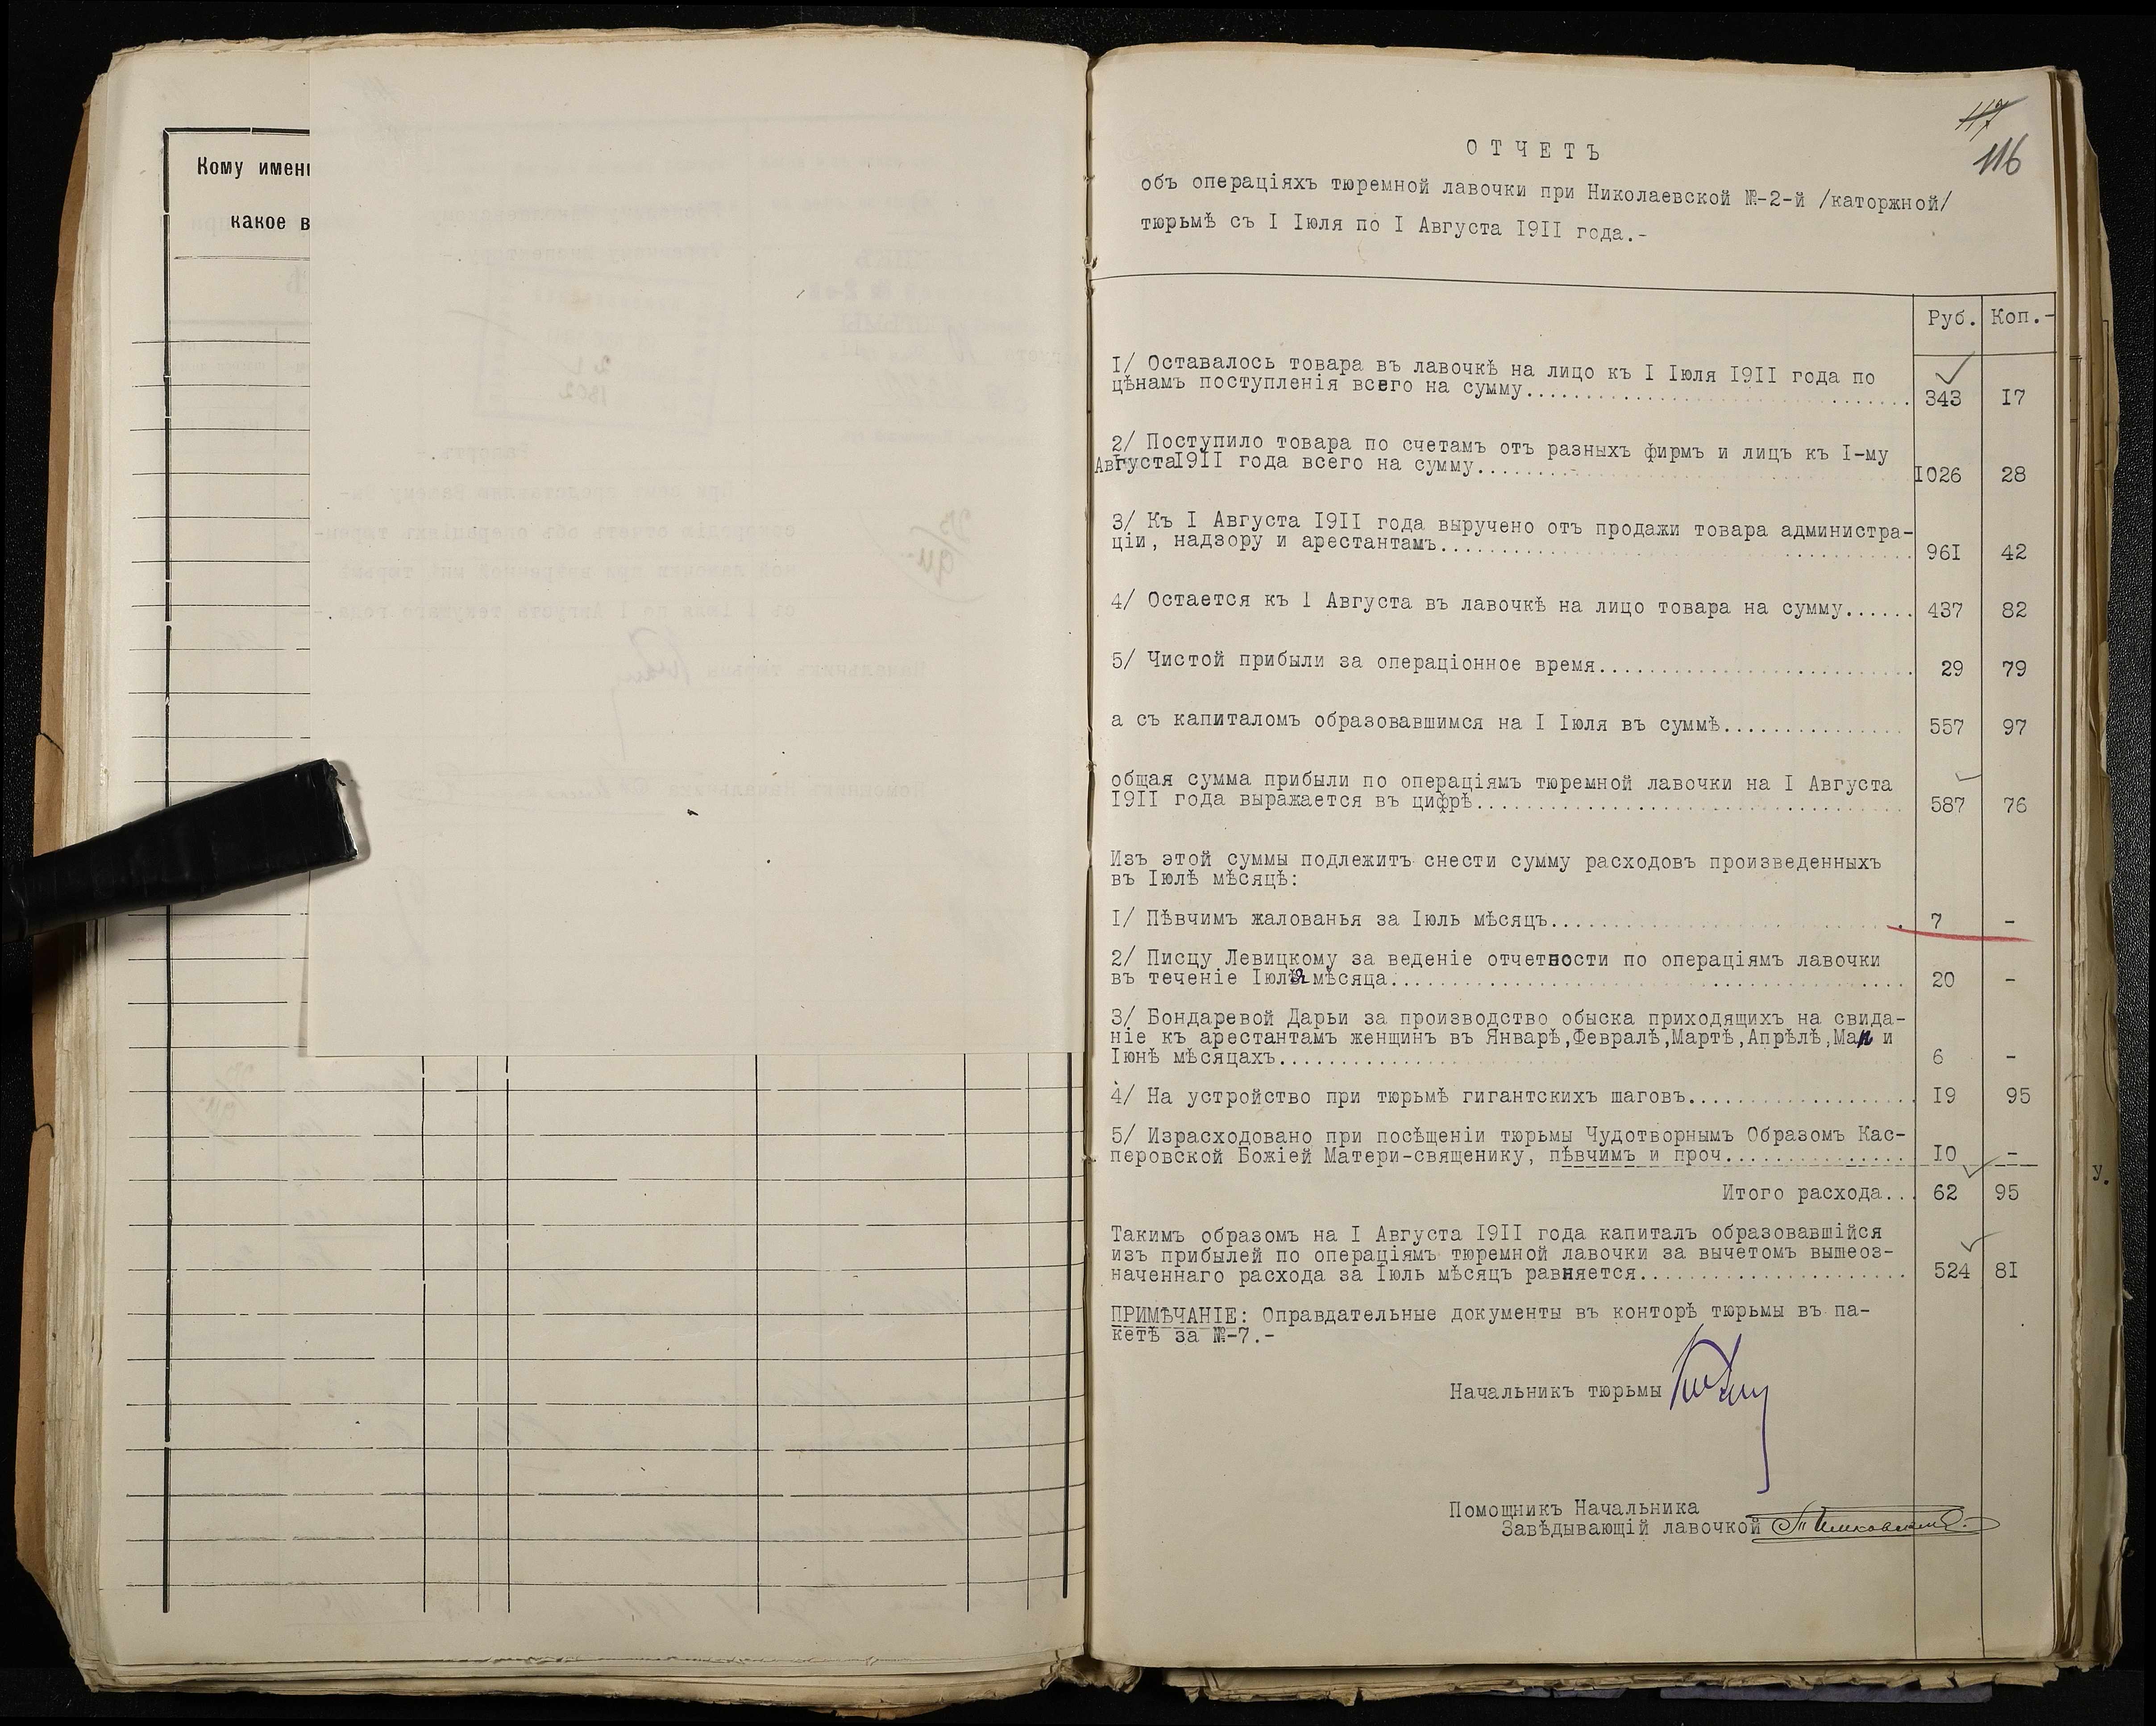 Кому имен
какое в
117
116
ОТЧЕТЪ
объ операціяхъ тюремной лавочки при Николаевской №-2-й /каторжной/
тюрьмѣ съ I Іюля по I Августа I9II года.-
Руб. Коп.-
I/ Оставалось товара въ лавочкѣ на лицо къ I Іюля I9II года по
цѣнамъ поступленія всего на сумму........ 343 I7
2/ Поступило товара по счетамъ отъ разныхъ фирмъ и лицъ къ I-му
АвгустаI9II года всего на сумму........ I026 28
3/ Къ I Августа I9II года выручено отъ продажи товара администра-
ціи, надзору и арестантамъ........ 96I 42
4/ Остается къ 1 Августа въ лавочкѣ на лицо товара на сумму...... 437 82
5/ Чистой прибыли за операціонное время........ 29 79
а съ капиталомъ образовавшимся на I Іюля въ суммѣ........ 557 97
общая сумма прибыли по операціямъ тюремной лавочки на I Августа
I9II года выражается въ цифрѣ........ 587 76
Изъ этой суммы подлежитъ снести сумму расходовъ произведенныхъ
въ Іюлѣ мѣсяцѣ:
I/ Пѣвчимъ жалованья за Іюль мѣсяцъ........ 7 -
2/ Писцу Левицкому за веденіе отчетности по операціямъ лавочки
въ теченіе Іюля мѣсяца........ 20 -
3/ Бондаревой Дарьи за производство обыска приходящихъ на свида-
ніе къ арестантамъ женщинъ въ Январѣ,Февралѣ,Мартѣ,Апрѣлѣ,Маѣ и
Іюнѣ мѣсяцахъ........ 6 -
4/ На устройство при тюрьмѣ гигантскихъ шаговъ........ I9 95
5/ Израсходовано при посѣщеніи тюрьмы Чудотворнымъ Образомъ Кас-
перовской Божіей Матери-священику, пѣвчимъ и проч........ I0 -
Итого расхода... 62 95
Такимъ образомъ на I Августа I9II года капиталъ образовавшійся
изъ прибылей по операціямъ тюремной лавочки за вычетомъ вышеоз-
наченнаго расхода за Іюль мѣсяцъ равняется........ 524 8I
ПРИМѢЧАНІЕ: Оправдательные документы въ конторѣ тюрьмы въ па-
кетѣ за №-7.-
Начальникъ тюрьмы
Помощникъ Начальника
Завѣдывающій лавочкой
у.